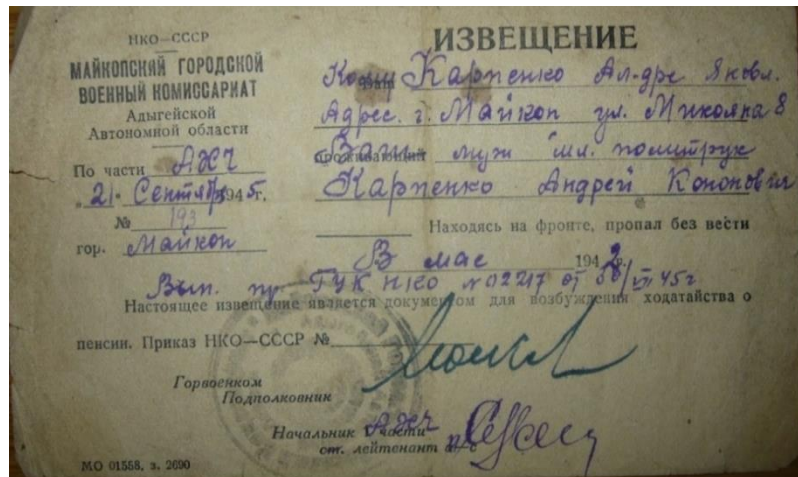 НКО—СССР
МАЙКОПСКИЙ ГОРОДСКОЙ
ВОЕННЫЙ КОМИССАРИАТ
Адыгейской
Автономной области
По части АХЧ
„21" Сентября 1945 г.
№ 193
гор. Майкоп
ИЗВЕЩЕНИЕ
Кому Карпенко Ал-дре Яковл.
Адрес. г. Майкоп ул. Микояна 8
Ваш муж мл. политрук
Карпенко Андрей Кононович
Находясь на фронте, пропал без вести
В мае 1942 г.
Вып. пр. ГУК НКО №02217 от
Настоящее извещение является документом для возбуждения ходатайства о
пенсии. Приказ НКО—СССР №
Горвоенком
Подполковник
Начальник части АХЧ
ст. лейтенант а/с
МО 01558, з. 2690